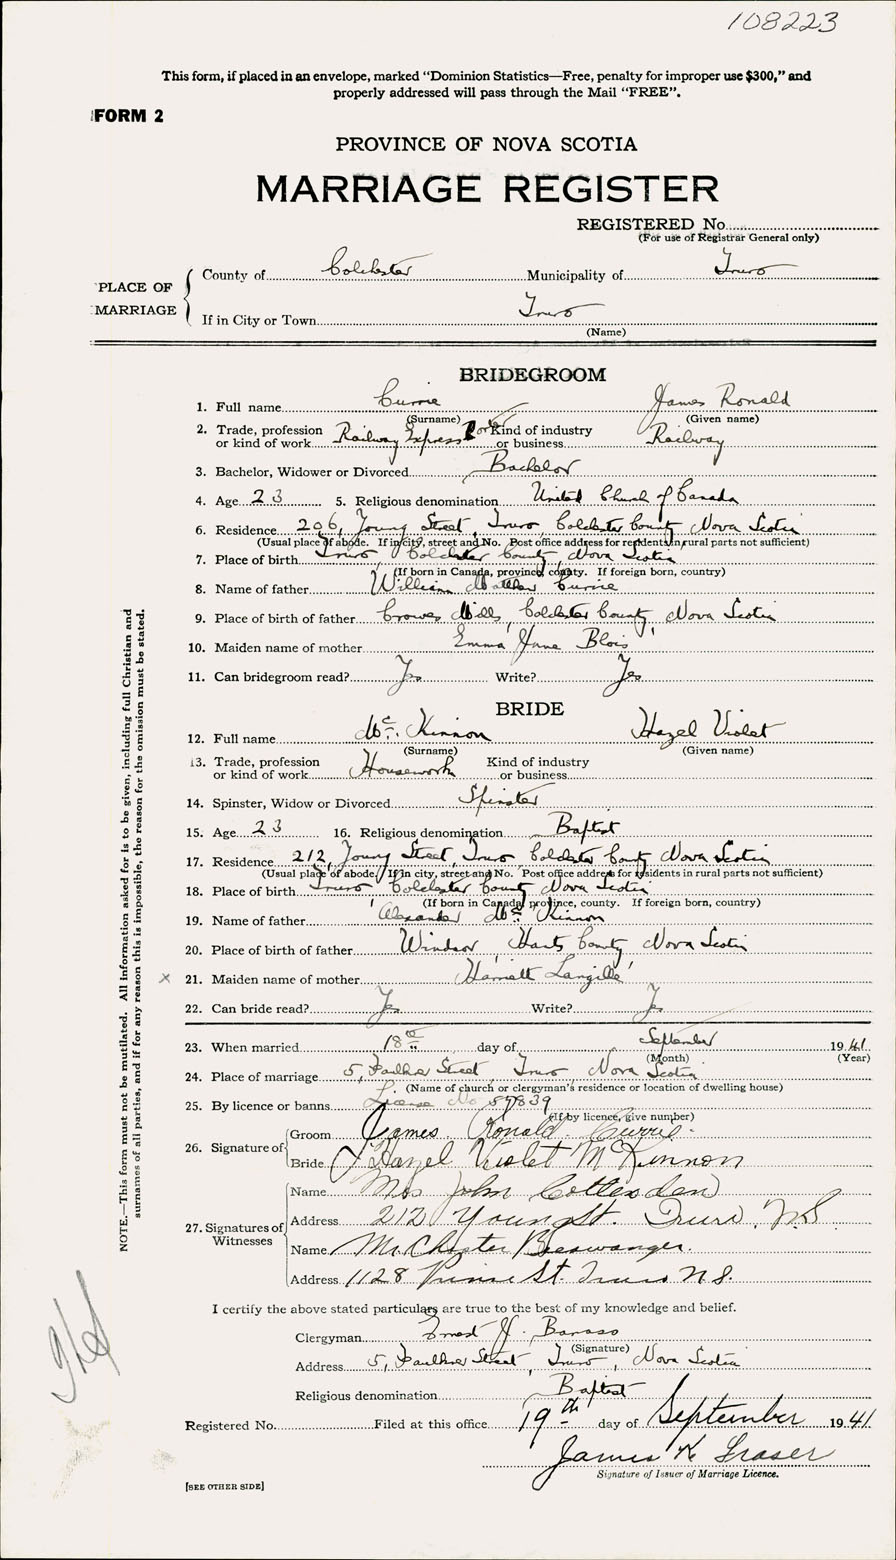 108223
This form, if placed in an envelope, marked "Dominion Statistics—Free, penalty for improper use $300," and
properly addressed will pass through the Mail "FREE".
FORM 2
PROVINCE OF NOVA SCOTIA
MARRIAGE REGISTER
REGISTERED No.
(For use of Registrar General only)
PLACE OF MARRIAGE
County of Colchester Municipality of Truro
If in City or Town Truro
(Name)
BRIDEGROOM
1. Full name Currie James Ronald
(Surname) (Given name)
2. Trade, profession or kind of work Railway Express Porter Kind of industry or business Railway
3. Bachelor, Widower or Divorced Bachelor
4. Age 23 5. Religious denomination United Church of Canada
6. Residence 206, Young Street, Truro Colchester County Nova Scotia
(Usual place of abode. If in city, street and No. Post office address for residents in rural parts not sufficient)
7. Place of birth Truro Colchester County Nova Scotia
(If born in Canada, province, county. If foreign born, country)
8. Name of father William Matthew Currie
9. Place of birth of father Crowes Mills, Colchester County, Nova Scotia
10. Maiden name of mother Emma Jane Blois
11. Can bridegroom read? Yes Write? Yes
BRIDE
12. Full name Mc. Kinnon Hazel Violet
(Surname) (Given name)
13. Trade, profession or kind of work Housework Kind of industry or business
14. Spinster, Widow or Divorced Spinster
15. Age 23 16. Religious denomination Baptist
17. Residence 212, Young Street, Truro Colchester County Nova Scotia
(Usual place of abode. If in city, street and No. Post office address for residents in rural parts not sufficient)
18. Place of birth Truro Colchester County Nova Scotia
(If born in Canada, province, county. If foreign born, country)
19. Name of father Alexander Mc. Kinnon
20. Place of birth of father Windsor, Hants County Nova Scotia
x 21. Maiden name of mother Harriett Langille
22. Can bride read? Yes Write? Yes
23. When married 18th day of September 1941
(Month) (Year)
24. Place of marriage 5, Faulkner Street, Truro Nova Scotia
(Name of church or clergyman's residence or location of dwelling house)
25. By licence or banns License No 57839
(If by licence, give number)
26. Signature of Groom James Ronald Currie.
Bride Hazel Violet McKinnon
27. Signatures of Witnesses
Name Mrs John Cottenden
Address 212 Young St. Truro, N.S
Name Mr. Chester
Address 1128 Prince St. Truro N.S.
I certify the above stated particulars are true to the best of my knowledge and belief.
Clergyman Ernest J. Barrass
(Signature)
Address 5, Faulkner Street, Truro, Nova Scotia
Religious denomination Baptist
Registered No. Filed at this office 19th day of September 1941
James K Fraser
Signature of Issuer of Marriage Licence.
[SEE OTHER SIDE]
NOTE.—This form must not be mutilated. All information asked for is to be given, including full Christian and
surnames of all parties, and if for any reason this is impossible, the reason for the omission must be stated.